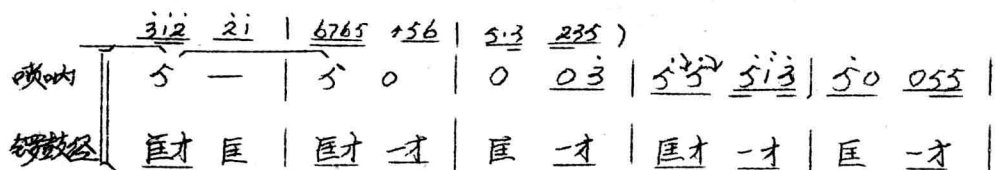 3̇i̇2̇ 2̇i̇ | 6765 +56 | 5·3 235 )
唢呐 5 — | 5 0 | 0 0 3̇ | 5̇ 5̇ 5̇i̇3̇ | 5̇0 055 |
锣鼓经 匡才 匡 | 匡才 一才 | 匡 一才 | 匡才 一才 | 匡 一才 |